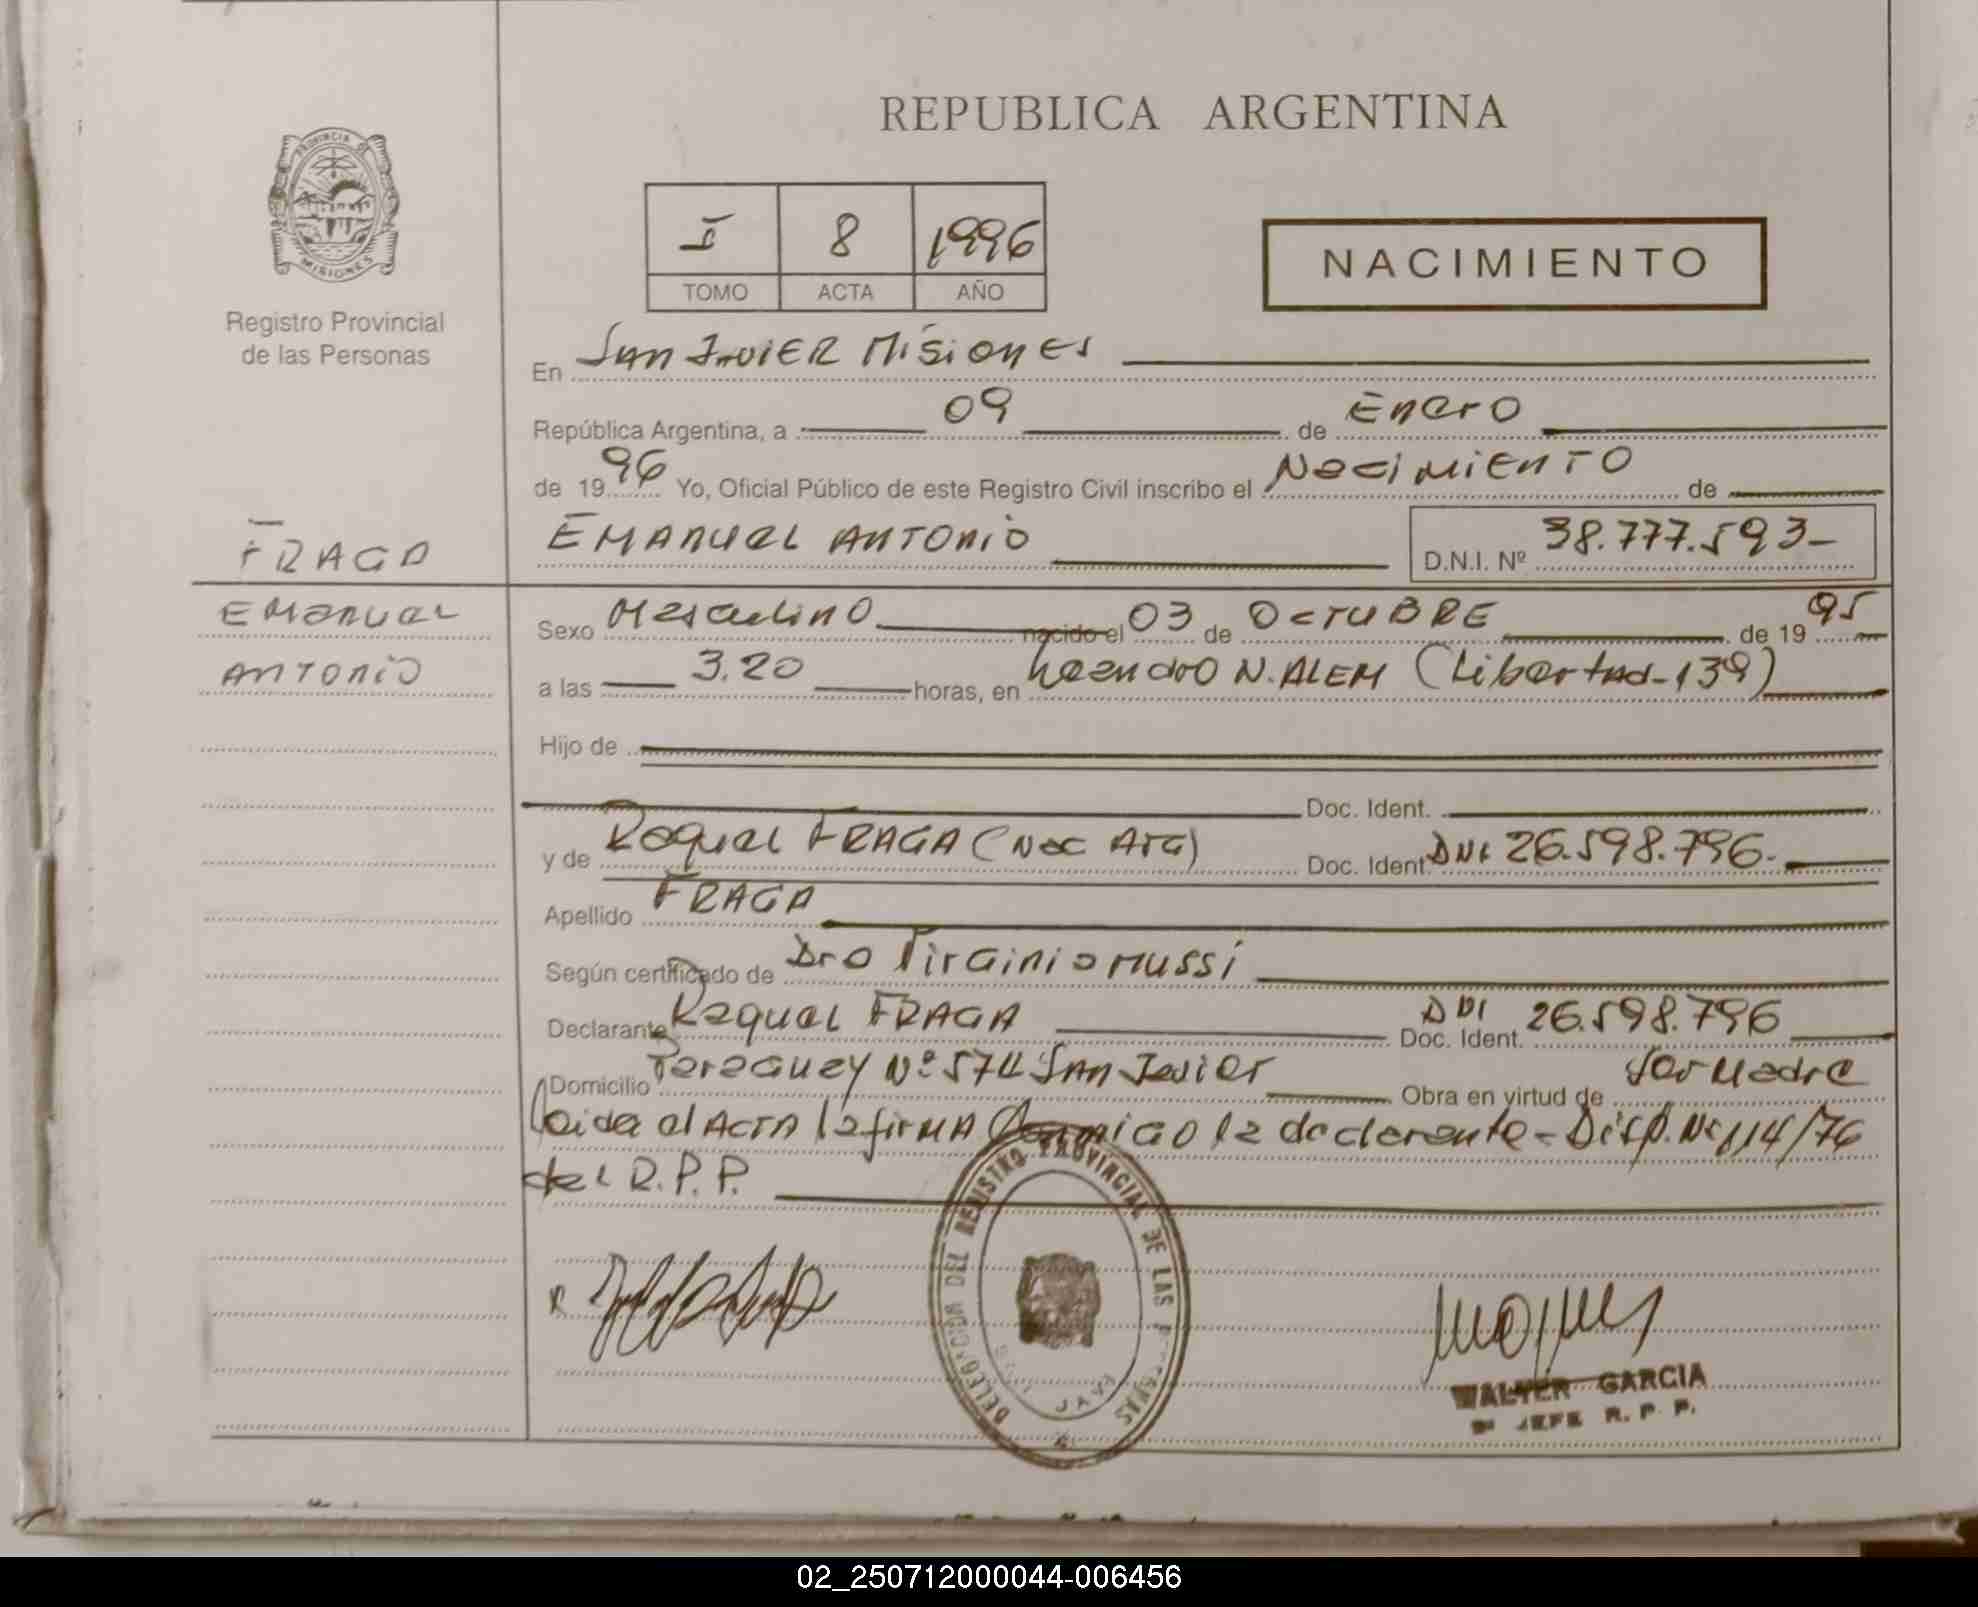 REPUBLICA ARGENTINA
PROVINCIA DE MISIONES
Registro Provincial
de las Personas
I 8 1996
TOMO ACTA AÑO
NACIMIENTO
En San Javier Misiones
República Argentina, a 09 de Enero
de 1996 Yo, Oficial Público de este Registro Civil inscribo el Nacimiento de
FRAGA
EMANUEL ANTONIO D.N.I. Nº 38.777.593-
EMANUEL
ANTONIO
Sexo Masculino nacido el 03 de OCTUBRE de 1995
a las 3.20 horas, en Leandro N. ALEM (Libertad-139)
Hijo de
Doc. Ident.
y de Raquel FRAGA (Nac ARG) Doc. Ident. DNI 26.598.796.
Apellido FRAGA
Según certificado de Dro Mussi
Declarante Raquel FRAGA Doc. Ident. DNI 26.598.796
Domicilio Paraguay Nº 574 San Javier Obra en virtud de Ser Madre
Leida el ACTA la firma la declarante - Disp. Nº 114/76
del R.P.P.
DELEGACION DEL REGISTRO PROVINCIAL DE LAS PERSONAS
WALTER GARCIA
JEFE R. P. P.
02_250712000044-006456